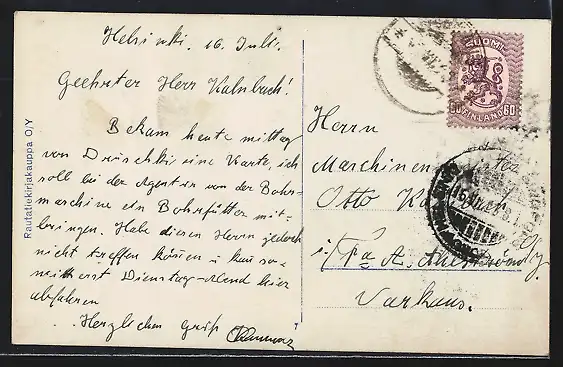 Helsinki. 16. Juli.
Geehrter Herr Kalnbach!
Bekam heute mittag
von Drüschki eine Karte, ich
soll bei der Agentur von der Bohr-
maschine ein Bohrfütter mit-
bringen. Habe diesen Herrn jedoch
nicht treffen können u. kann so-
mit erst Dienstag-Abend hier
abfahren
Herzlichen Gruß
Rautatiekirjakauppa O/Y
SUOMI
60 60
FINLAND
Herrn
Maschinen
Otto
i/Fa A. Ahlström O/y.
Varkaus.